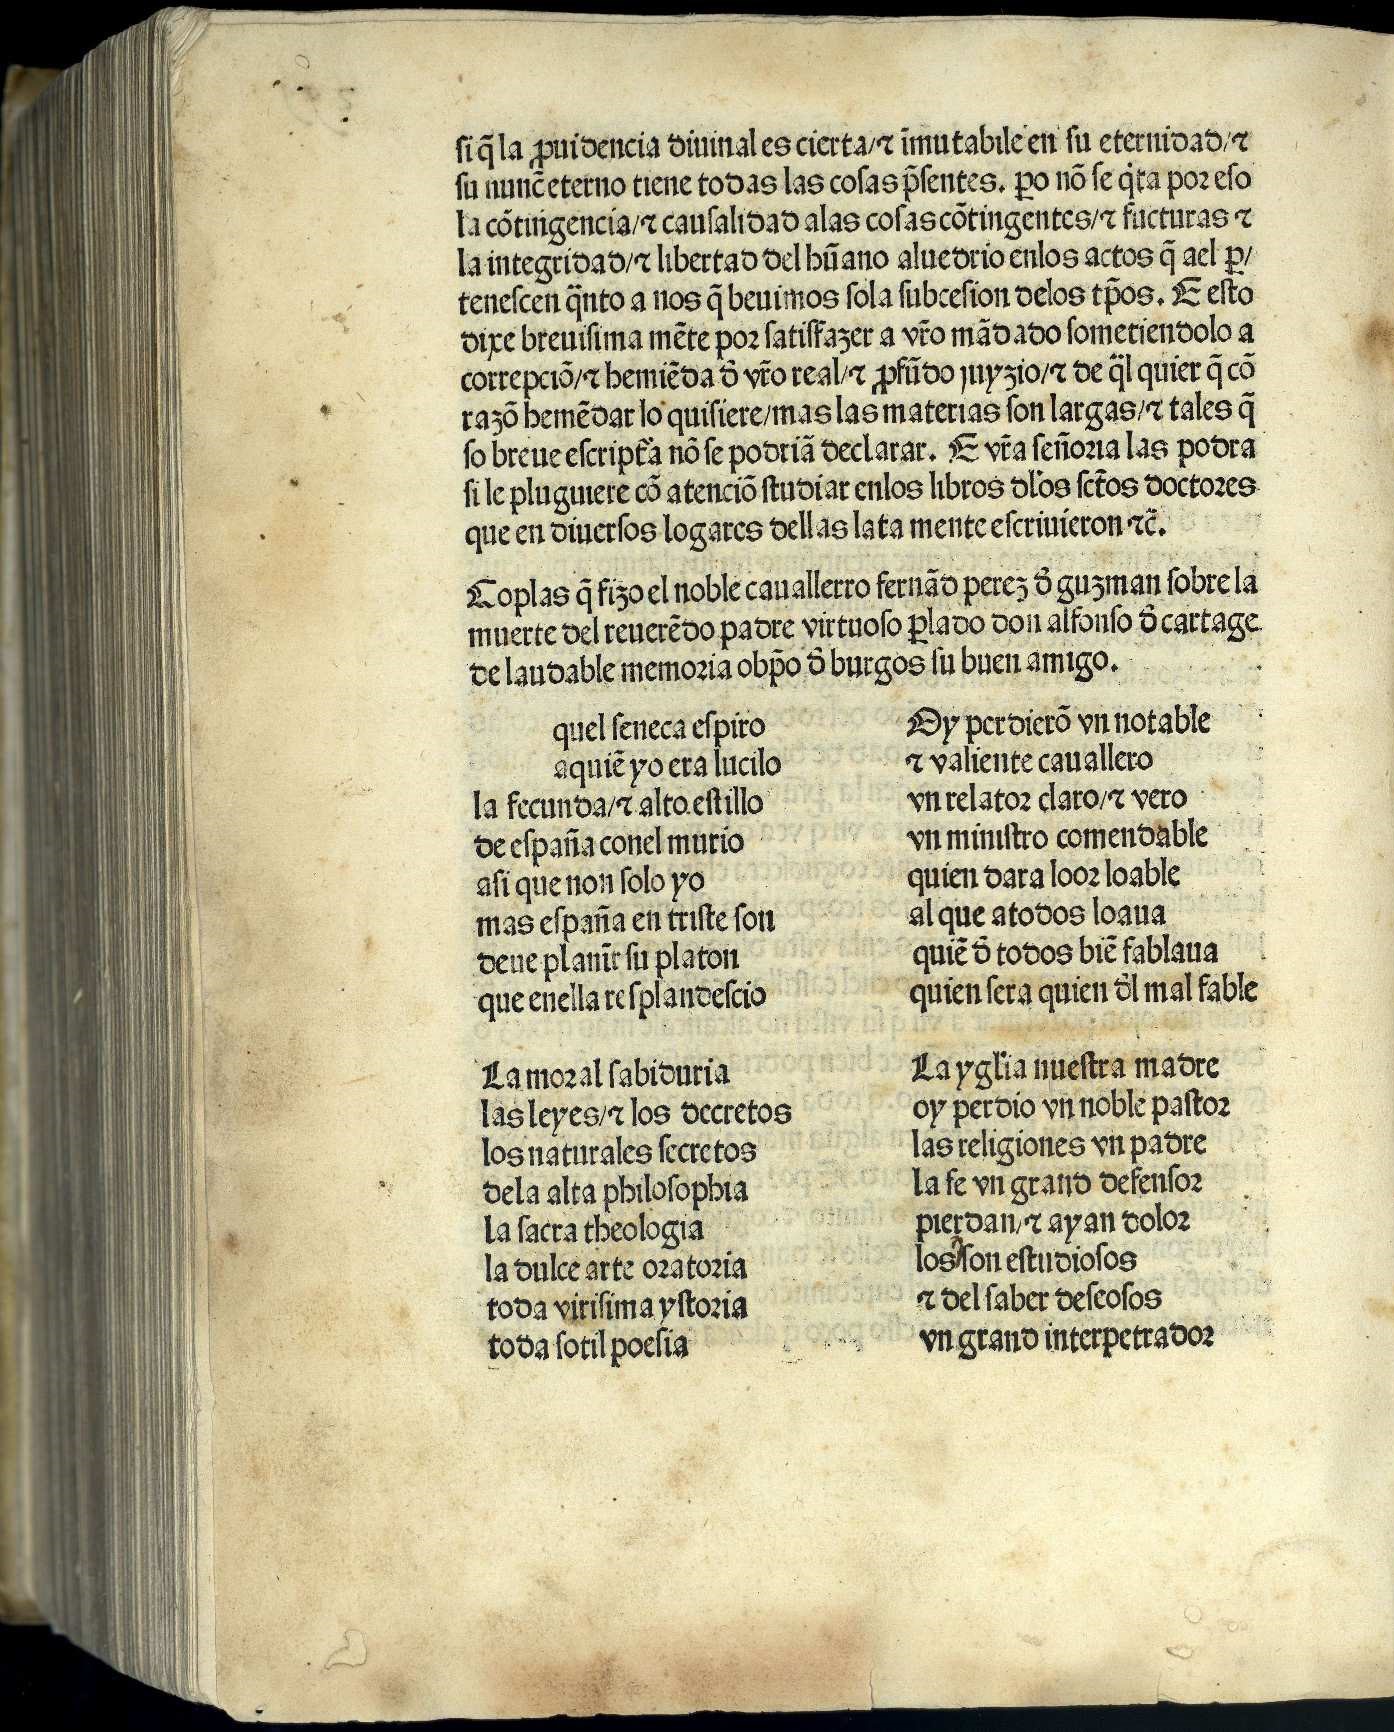 si q̄ la ꝓuidencia diuinal es cierta/⁊ īmutabile en su eternidad/⁊
su nunc̄ eterno tiene todas las cosas p̄sentes. ꝑo nō se q̇ta por eso
la cōtingencia/⁊ causalidad alas cosas cōtingentes/⁊ fucturas ⁊
la integridad/⁊ libertad del hūano aluedrio enlos actos q̄ ael ꝑ/
tenescen q̈nto a nos q̄ beuimos sola subcesion delos tp̄os. E esto
dixe breuisima mēte por satisfazer a vr̄o mādado sometiendolo a
correpciō/⁊ hemiēda d̄ vr̄o real/⁊ ꝓfūdo juyzio/⁊ de q̈l quier q̄ cō
razō hemēdar lo quisiere/mas las materias son largas/⁊ tales q̄
so breue escriptr̄a nō se podriā declarar. E vr̄a señoria las podra
si le pluguiere cō atenciō studiar enlos libros dl̓os sct̄os doctores
que en diuersos logares dellas lata mente escriuieron ⁊c̄.
Coplas q̄ fizo el noble cauallerro fernād perez d̄ guzman sobre la
muerte del reuerēdo padre virtuoso ꝑlado don alfonso d̄ cartage
de laudable memoria obp̄o d̄ burgos su buen amigo.
quel seneca espiro
aquiē yo era lucilo
la fecunda/⁊ alto estillo
de españa conel murio
asi que non solo yo
mas españa en triste son
deue planir̄ su platon
que enella resplandescio
La moral sabiduria
las leyes/⁊ los decretos
los naturales secretos
dela alta philosophia
la sacra theologia
la dulce arte oratoria
toda virisima ystoria
toda sotil poesia
Oy perdierō vn notable
⁊ valiente cauallero
vn relator claro/⁊ vero
vn ministro comendable
quien dara loor loable
al que atodos loaua
quiē d̄ todos biē fablaua
quien sera quien d̄l mal fable
La ygl̓ia nuestra madre
oy perdio vn noble pastor
las religiones vn padre
la fe vn grand defensor
pierdan/⁊ ayan dolor
los son estudiosos
⁊ del saber deseosos
vn grand interpetrador